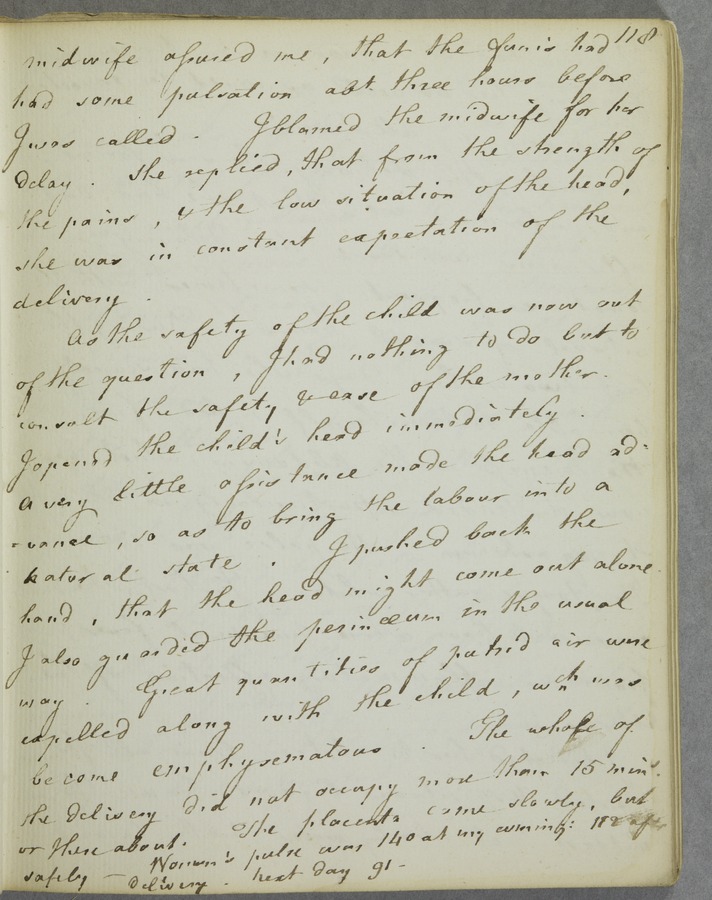 118
midwife assured me, that the funis had
had some pulsation abt. three hours before
I was called. I blamed the midwife for her
delay. She replied, that from the strength of
the pains, & the low situation of the head,
she was in constant expectation of the
delivery.
As the safety of the child was now out
of the question, I had nothing to do but to
consult the safety & ease of the mother.
I opened the child's head immediately.
A very little assistance made the head ad-
-vance, so as to bring the labour into a
natural state. I pushed back the
hand, that the head might come out alone.
I also guarded the perinæum in the usual
way. Great quantities of putrid air were
expelled along with the child, wch was
become emphysematous. The whole of
the delivery did not occupy more than 15 min.
or thereabout. The placenta came slowly, but
safely — Woman's pulse was 140 at my coming: 112 after
delivery. next day 91 -